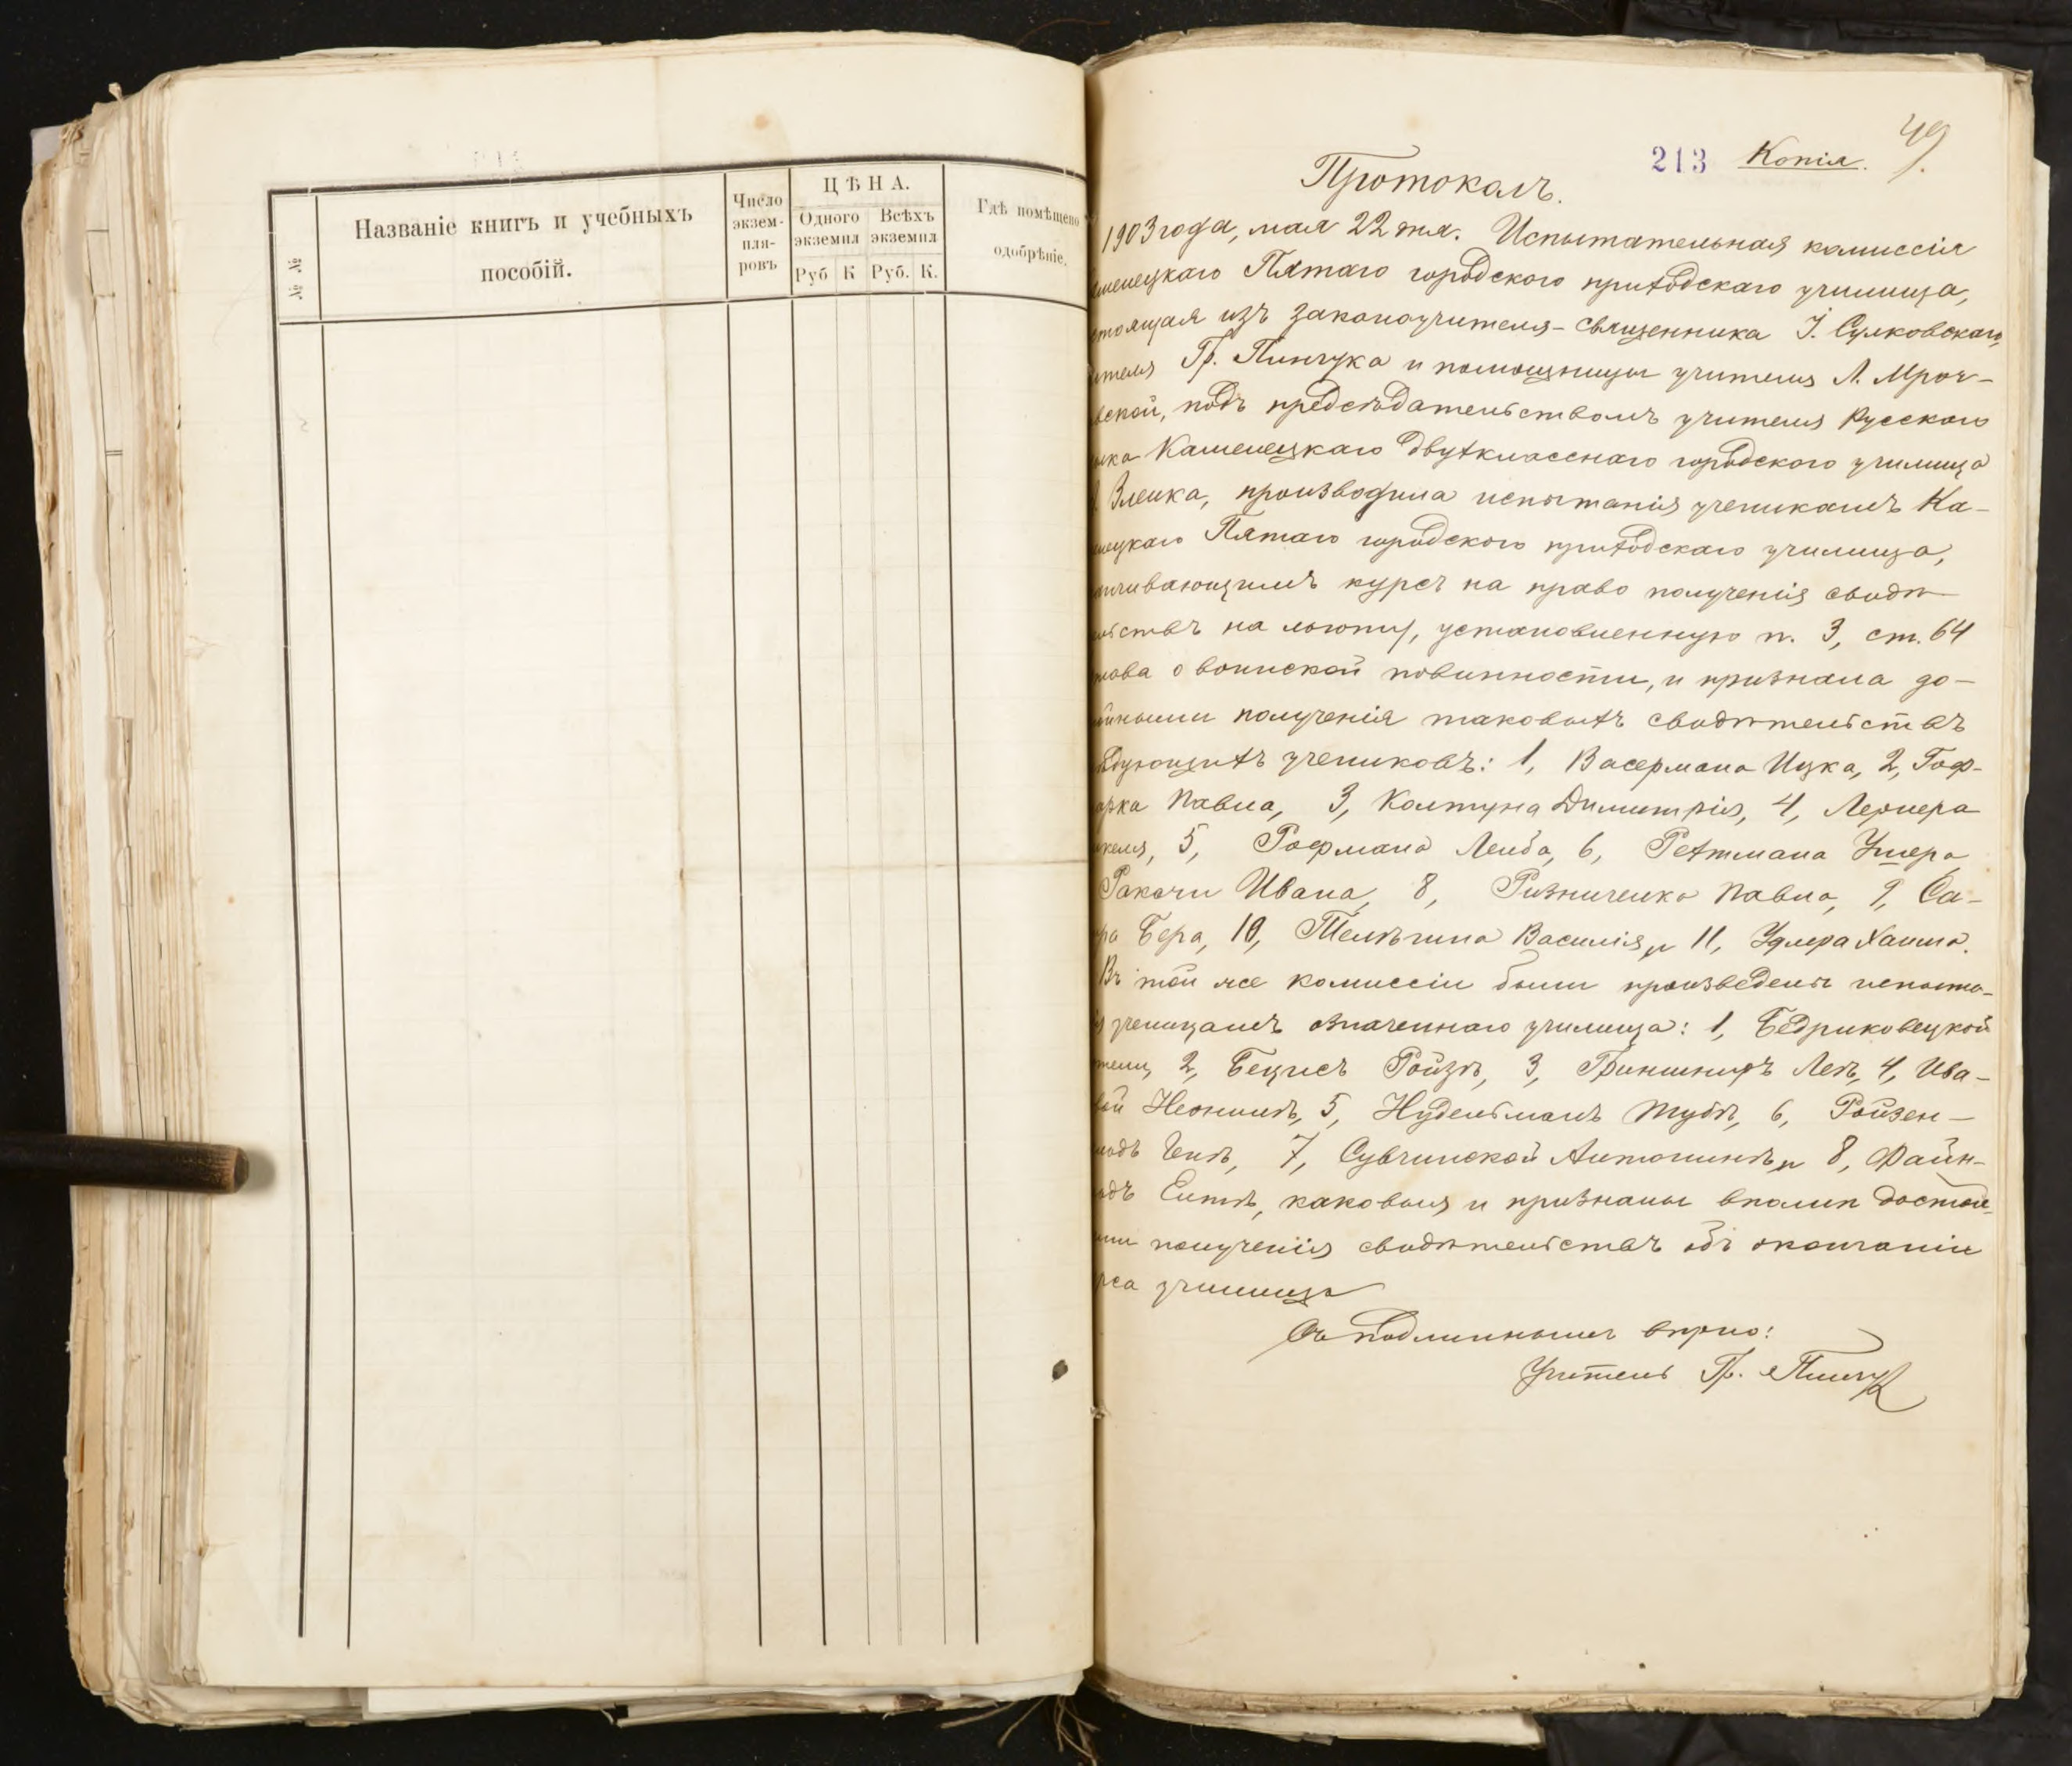 № №
Названіе книгъ и учебныхъ
пособій.
Число
экзем-
пля-
ровъ
ЦѢНА.
Одного
экземпл
Всѣхъ
экземпл
Руб К Руб. К.
Гдѣ помѣщено
одобрѣніе.
213 Копія. 49.
Протоколъ.
1903 года, мая 22 дня. Испытательная комиссія
менецкаго Пятаго городского приходскаго училища,
стоящая изъ законоучителя-священника І. Сулковскаго,
ителя Гр. Пинчука и помощницы учителя Л. Мроч-
вской, подъ предсѣдательствомъ учителя Русскаго
ыка Каменецкаго двухкласснаго городского училища
Зленка, производила испытанія ученикамъ Ка-
нецкаго Пятаго городского приходскаго училища,
нчивающимъ курсъ на право полученія свидѣ-
льствъ на льготу, установленную п. 3, ст. 64
тава о воинской повинности, и признала до-
йными полученія таковыхъ свидѣтельствъ
ѣдующихъ учениковъ: 1, Васермана Ицка, 2, Гоф-
арка Павла, 3, Колтуна Димитрія, 4, Лернера
келя, 5, Рофмана Лейба, 6, Рехтмана Ушера
Ракочи Ивана, 8, Ризниченка Павла, 9, Са-
ра Бера, 10, Телѣгина Василія и 11, Удлера Хаима.
Въ той же комиссіи были произведены испыта-
я ученицамъ означеннаго училища: 1, Бедриковецкой
тели, 2, Бецисъ Ройзѣ, 3, Гриншпунъ Леѣ, 4, Ива-
вой Неонилѣ, 5, Нудельманъ Тубѣ, 6, Ройзен-
лодъ Генѣ, 7, Сувчинской Антонинѣ и 8, Файн-
одъ Ентѣ, каковыя и признаны вполнѣ достой-
ми полученія свидѣтельствъ объ окончаніи
рса училища
Съ подлиннымъ вѣрно:
Учитель Гр. Пинчук